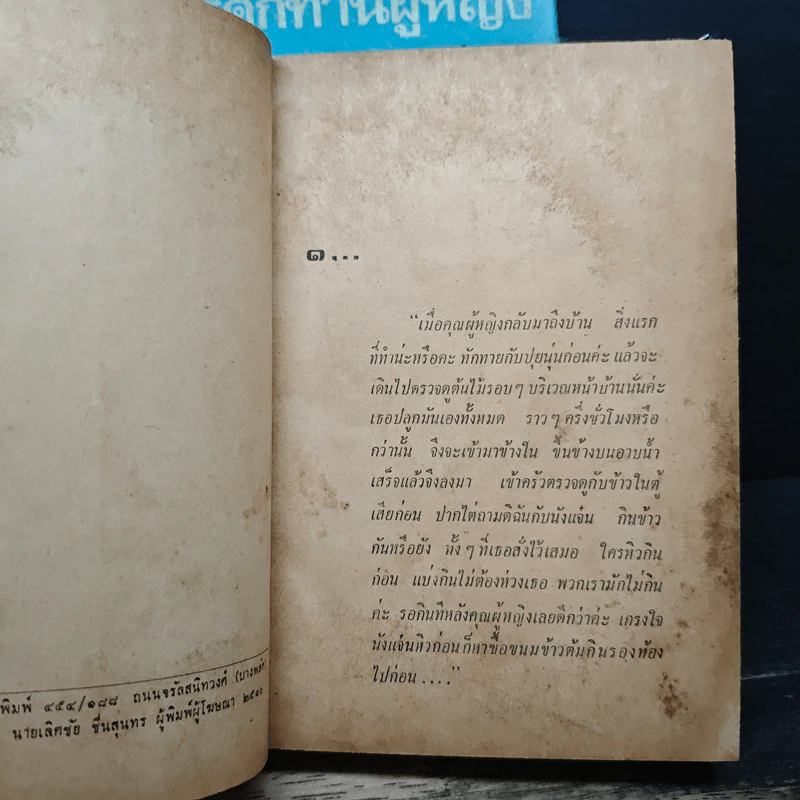 รดกท่านผู้หญิง
๑...
“เมื่อคุณผู้หญิงกลับมาถึงบ้าน สิ่งแรก
ที่ทำน่ะหรือคะ ทักทายกับปุยนุ่นก่อนค่ะ แล้วจะ
เดินไปตรวจดูต้นไม้รอบๆ บริเวณหน้าบ้านนั่นค่ะ
เธอปลูกมันเองทั้งหมด ราวๆ ครึ่งชั่วโมงหรือ
กว่านั้น จึงจะเข้ามาข้างใน ขึ้นข้างบนอาบน้ำ
เสร็จแล้วจึงลงมา เข้าครัวตรวจดูกับข้าวในตู้
เสียก่อน ปากไต่ถามดิฉันกับนังแจ๋น กินข้าว
กันหรือยัง ทั้งๆ ที่เธอสั่งไว้เสมอ ใครหิวกิน
ก่อน แบ่งกินไม่ต้องห่วงเธอ พวกเรามักไม่กิน
ค่ะ รอกินทีหลังคุณผู้หญิงเลยดีกว่าค่ะ เกรงใจ
นังแจ๋นหิวก่อนก็หาซื้อขนมข้าวต้มกินรองท้อง
ไปก่อน ....”
พิมพ์ ๔๕๔/๑๘๘ ถนนจรัลสนิทวงศ์ (บางพลัด)
นายเลิศชัย ชื่นสุนทร ผู้พิมพ์ผู้โฆษณา